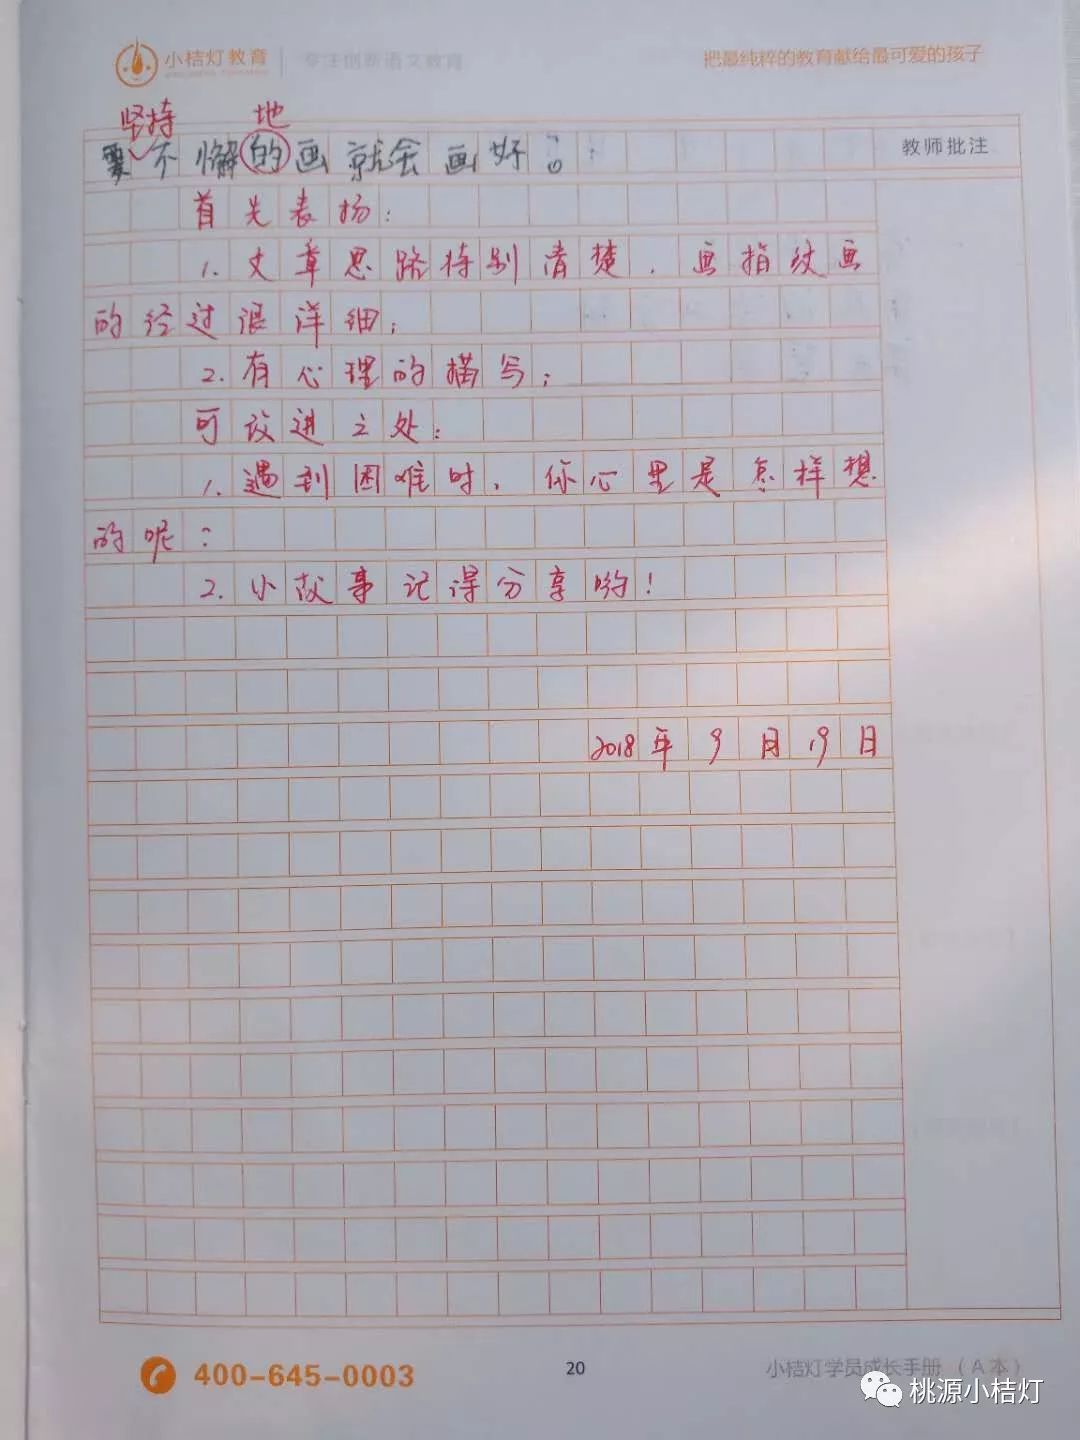 小桔灯教育
专注创新语文教育
把最纯粹的教育献给最可爱的孩子
坚持 地
要不懈的画就会画好。
教师批注
首先表扬：
1.文章思路特别清楚，画指纹画
的经过很详细；
2.有心理的描写；
可改进之处：
1.遇到困难时，你心里是怎样想
的呢？
2.小故事记得分享哟！
2018年9月19日
400-645-0003
20
小桔灯学员成长手册（A本）
桃源小桔灯